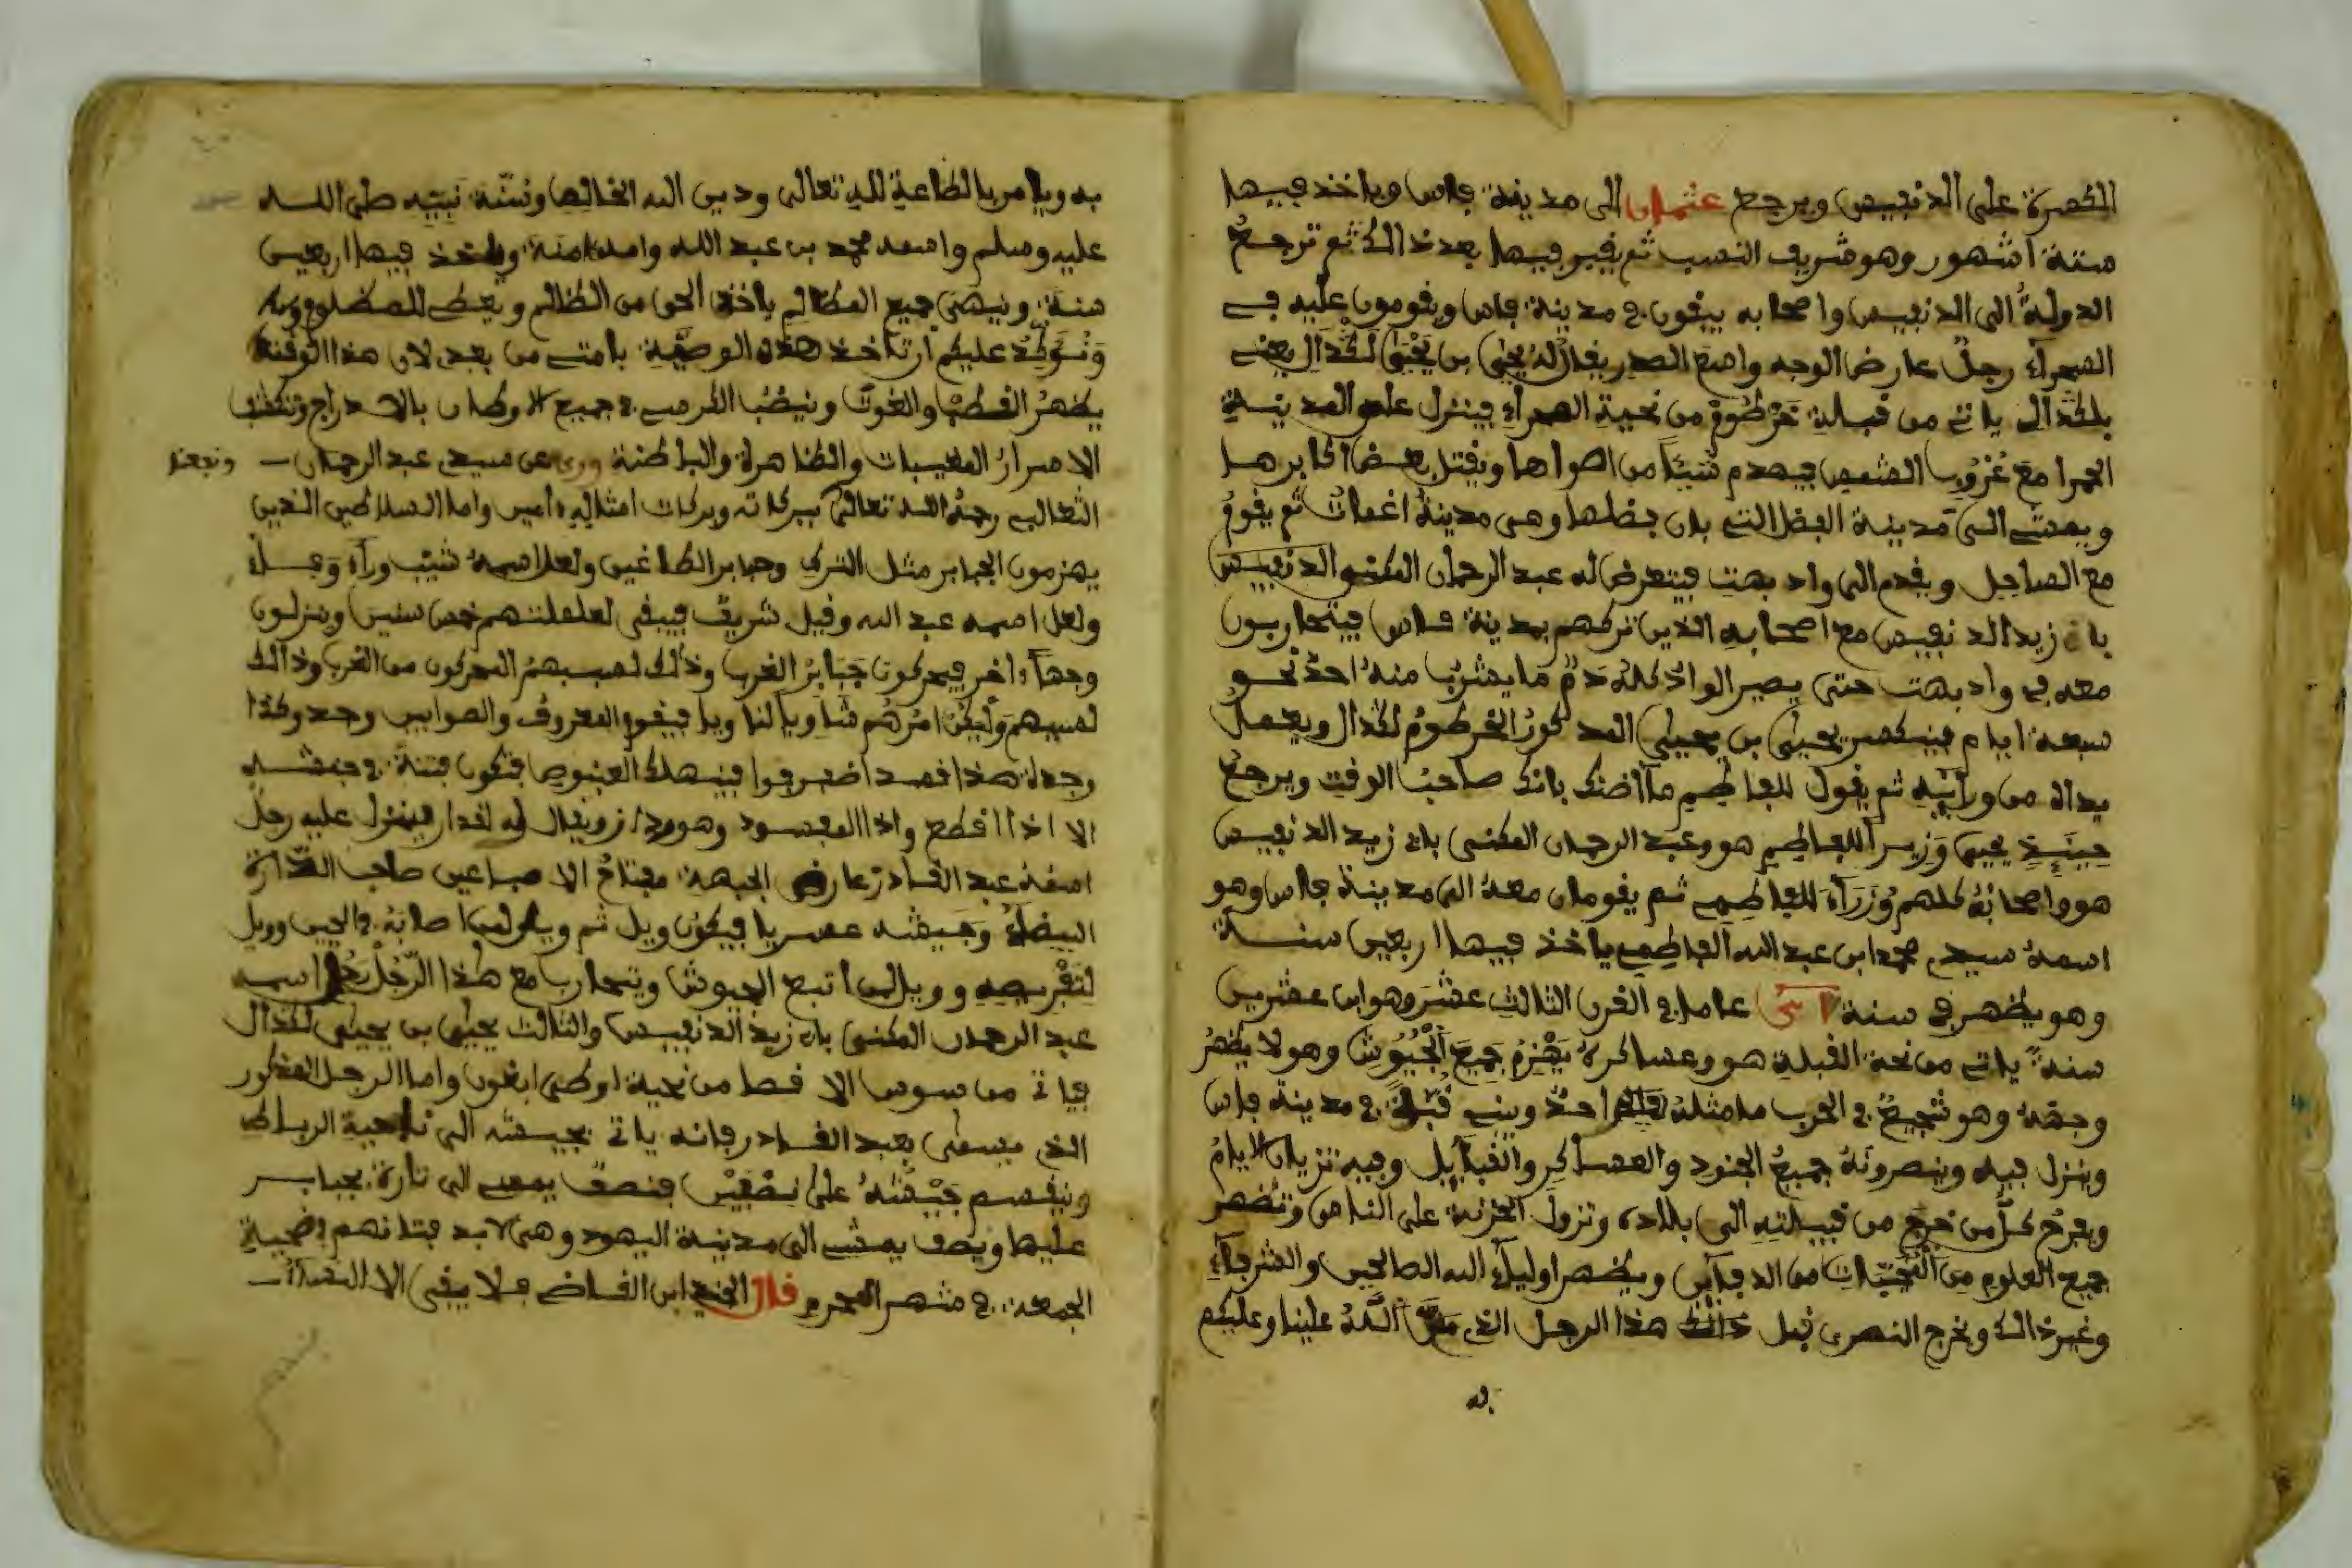 الكصرة على الدنفيس ويرجع عثمان إلى مدينة فاس وياخذ فيها
ستة اشهور وهو شريف النسب ثم يفبر فيها بعد ذالك ثم ترجعُ
الدولةُ الى الدنفيس واصحابه يبفون في مدينة فاس ويفومون عليه في
الصحراء رجلٌ عارض الوجه واسع الصدر يفال له يحيى بن يحيى لكدال يعني
بلكدال ياتي من فبلة خرطوم من نحية الصحراء فينزل على المدينة
الحمرا مع غروب الشمس فيهدم شيئا من اصوارها ويفتل بعض اكابرها
ويمشي الى مدينة الفضل التي بان فضلها وهي مدينة اغمات ثم يفوم
مع الساحل ويفدم الى واد بهت فيتعرض له عبد الرحمان المكنى الدنفيس
بابي زيد الدنفيس مع اصحابه الذين تركهم بمدينة فاس فيتحاربون
معه في واد بهت حتى يصير الواد كله دم ما يشرب منه احدٌ نحو
سبعة ايام فينكصر يحيى بن يحيى المذكور الخرطوم لكدال ويعمل
يداه من ورآئه ثم يفول للفاطمي ما اضنك بانك صاحب الوفت ويرجع
حينئذ يحيى وزيرا للفاطمي هو وعبد الرحمان المكنى بابي زيد الدنفيس
هو واصحابه كلهم وزرآء للفاطمي ثم يفومان معه الى مدينة فاس وهو
اسمه سيدي محمد ابن عبد الله الفاطمي ياخذ فيها اربعين سنة
وهو يظهر في سنة عاما في الفرن الثالث عشر وهو ابن عشرين
سنة ياتي من نحة الفبلة هو وعساكره يهزم جميع الجيوش وهو لا يظهر
وجهه وهو شجيع في الحرب ما مثله احدٌ ويبني فبلة في مدينة فاس
وينزل فيه وينصرونه جميع الجنود والعساكر والفبآيل وفيه تزيان الايام
ويفرح كل من خرج من فبيلته الى بلاده وتزول الحزنة على الناس وتظهر
جميع العلوم من المخبيات من الدفاين ويظهر اوليآء الله الصالحين والشرفآء
وغير ذالك ويخرج النصرى فبل ذالك هذا الرجل الذي منّ اللّه علينا وعليكم
به
به ويامر بالطاعة لله تعالى ودين الله الخالص وسنّة نبيّه صلى الله
عليه وسلم واسمه محمد بن عبد الله وامه ءامنة وياخذ فيها اربعين
سنة وينهى جميع المظالم ياخذ الحق من الظالم ويعطي للمظلوم
ونوكّد عليكم ان تاخذ هذه الوصيّة يا متي من بعد لان هذا الوفت
يظهر الفطب والغوث وينصب الكرسي في جميع الاوطان بالادراج وتكشف
الاسرار المغيبات والظاهرة والباطنة عن سيدي عبد الرحمان ونبعنا
الثعالبي رحمه الله تعالى ببركاته وبركات امثاله ءامين واما السلاطين الذين
يهزمون الجبابر مثل التركي وجبابر الطاغين ولعل اسمه شيب ورآه وجله
ولعل اسمه عبد الله وفيل شريف فيبفى خمس سنين وينزلون
وجها ءاخر فيحركون جبابر الغرب وذلك المحركون من الغرب وذالك
امرهم شا ويالنا ويا فيفوم المعروف والصوابين وجد وكذا
وجدك هذا فصد فينهلك فتكون فتنة
الا اذا افطع واذا المفسود وهو ويفال له لفدار فينزل عليه رجل
اسمه عبد الفادر عارض الجبهة مفتاح الا صاحب الشارة
البيضآء وجيشه عسريا فيكون ويل ثم ويل لمن اصابه في الحين وويل
لتفربه وويل لمن اتبع الجيوش ويتحارب مع هذا الرّجل اسمه
عبد الرحمان المكنى بابي زيد الدنفيس والثالث يحيى بن يحيى لكدال
فياتي من سوس الا فصا من نحية اوطى ابغون واما الرجل المذكور
الذي يسمى بعبد الفادر فانه ياتي بجيشه الى ناحية الرباط
وينفسم جيشه على نصفين فنصف يمضي الى تازة بجبابر
عليها ونصف يمشي الى مدينة اليهود وهي لابد فتانهم ضحية
الجمعة في شهر المحرم فال ابن الفاضي فلا يبفى الا